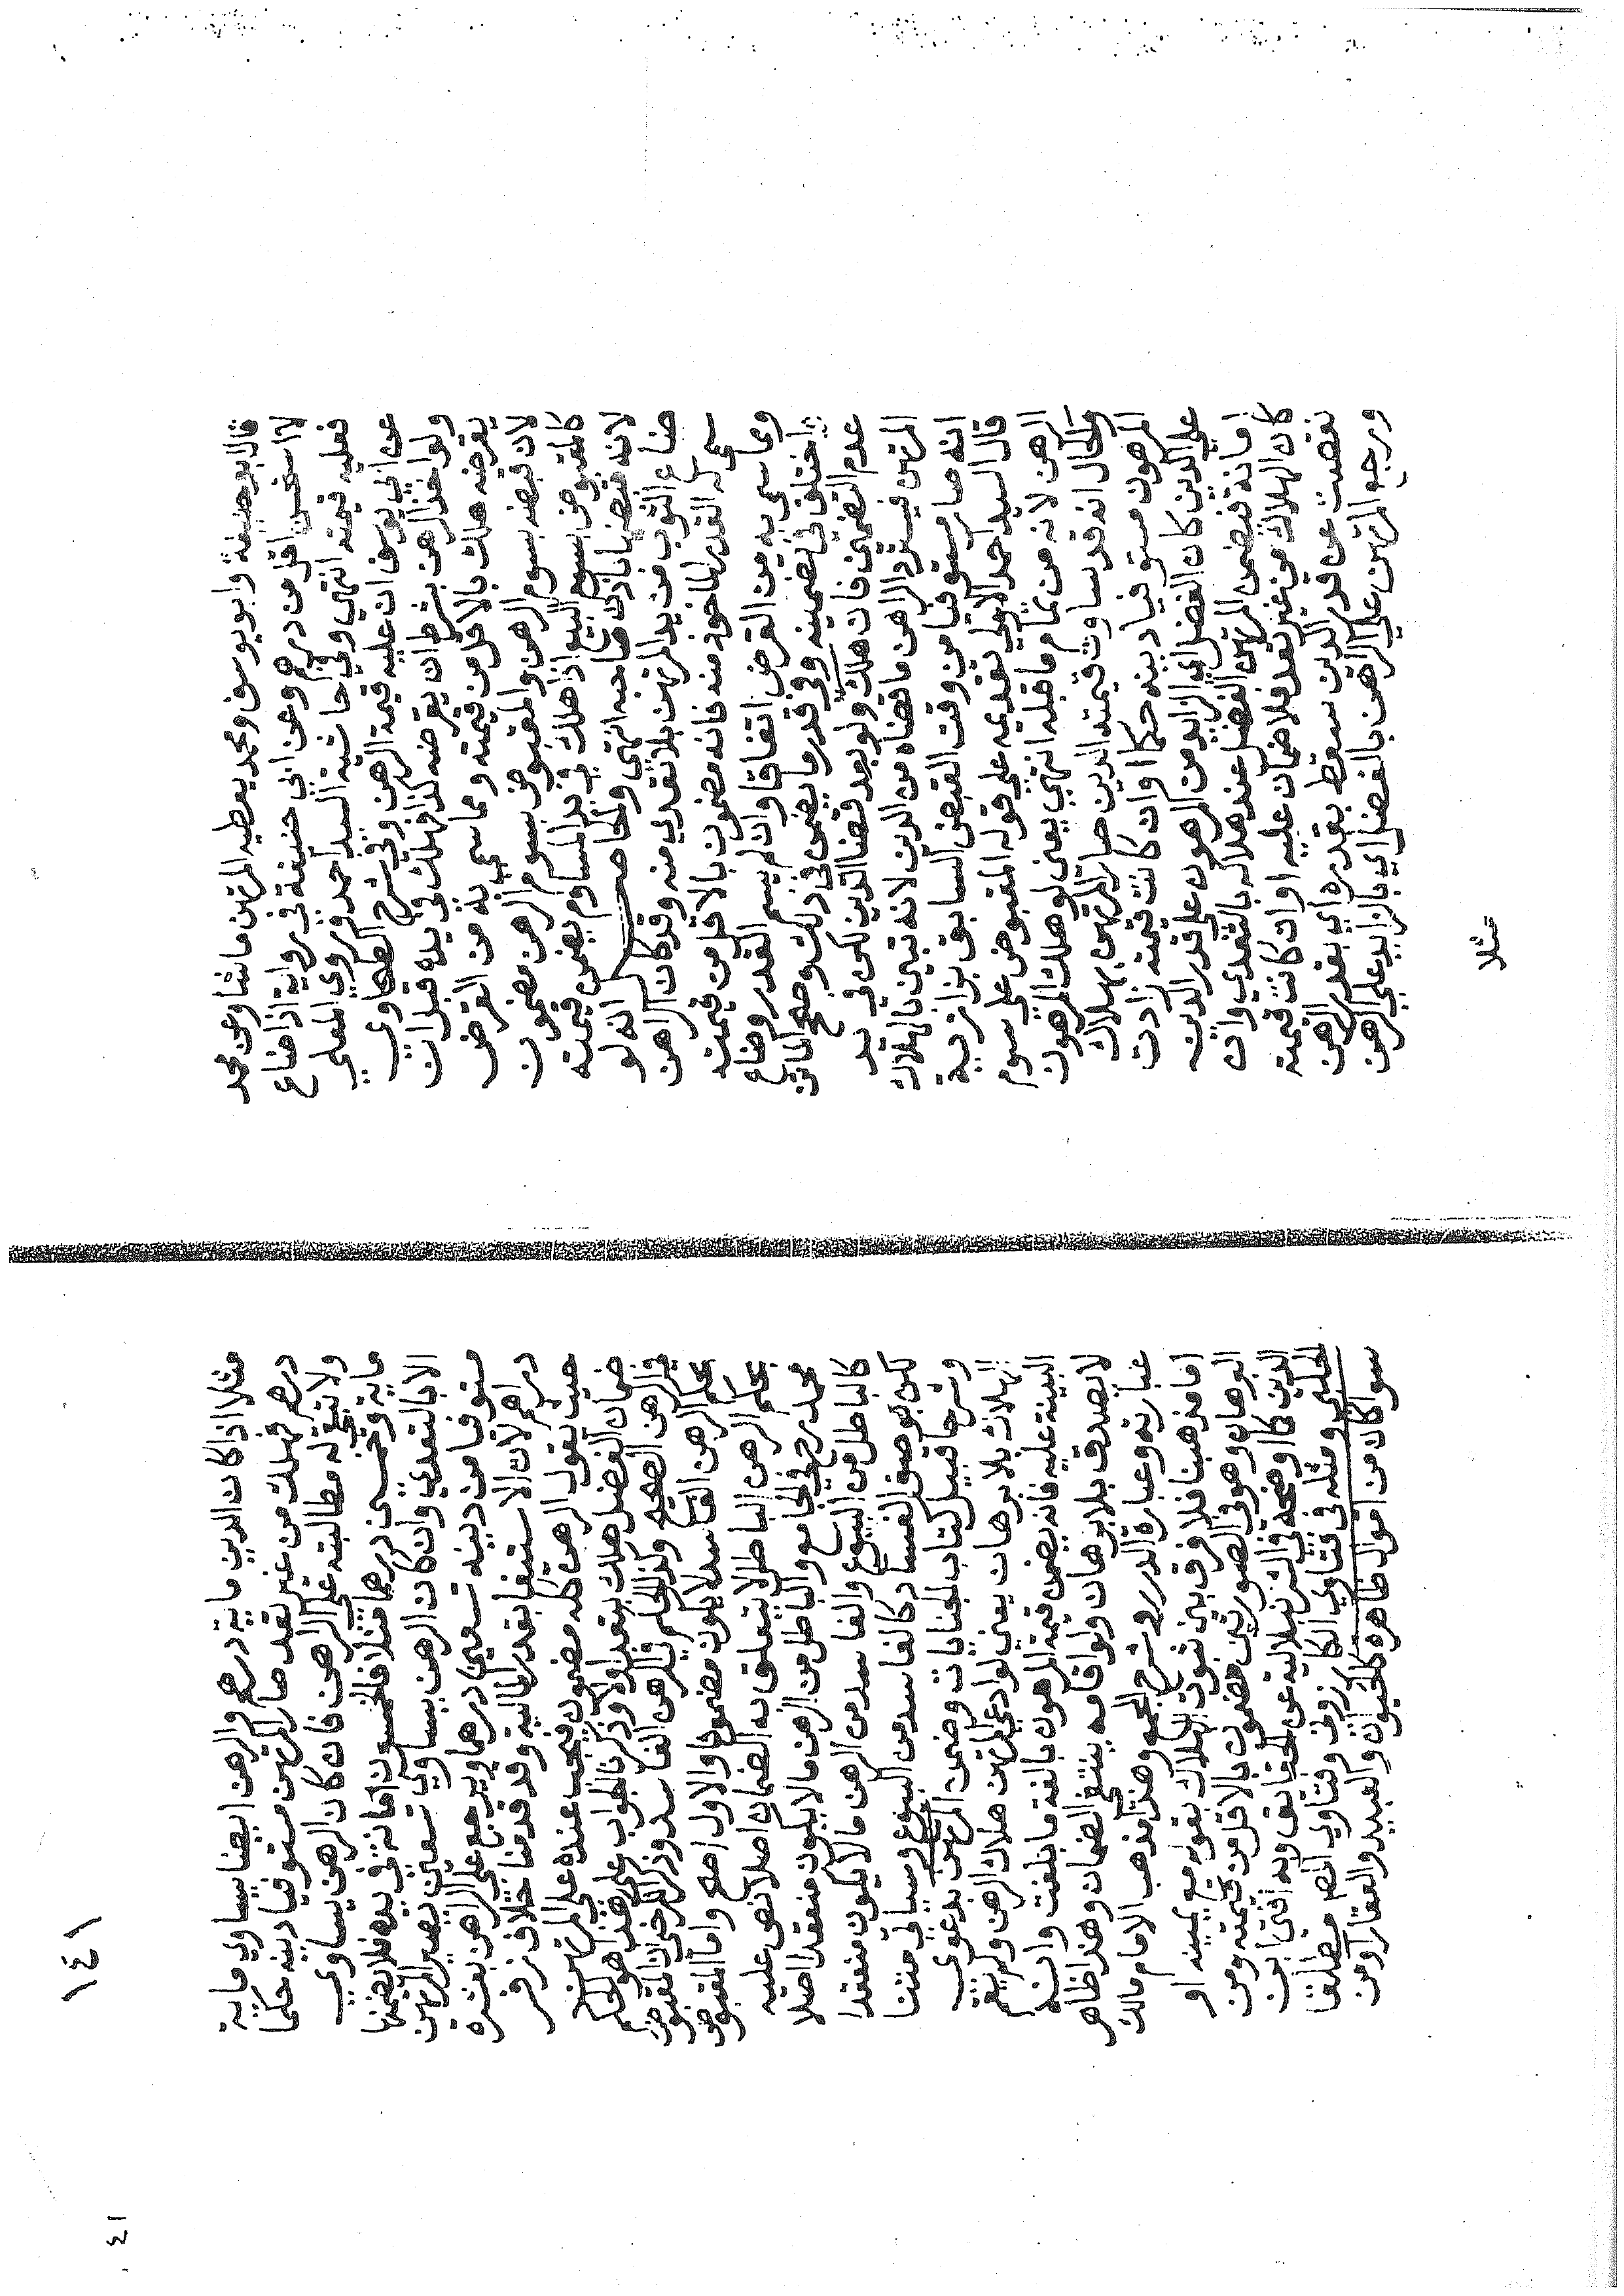 قال ابو حنيفة وابو يوسف ومحمد يعطيه المرتهن ما شا وعن محمد
لا استحسن اقل من درهم وعن ابي حنيفة في رواية اذا ضاع
فعليه قيمته انتهي وفي حاشية السيد احمد وروي المعلي
عن ابي يوسف ان عليه قيمة الرهن وفي شرح الطحاوي
ولو اخذ الرهن بشرط ان يقرضه كذا فهلك في يده قبل ان
يقرضه هلك بالاقل من قيمته ومما سمي به من القرض
لان قبضه بسوم الرهن والمقبوض بسوم الرهن مضمون
كالمقبوض بسوم البيع اذا هلك في يد المساوم يضمن قيمته
لانه قبضها باذن صاحبه انتهي والحاصل انه لو
ضاع الثوب من يد المرتهن بلا تعدي منه وقد كان الراهن
سمي له القدر الماخوذ منه فانه مضمون بالاقل من قيمته
ومما سمي به من القرض اتفاقا وان لم يسم القدر وضاع
اختلف في تضمينه وفي قدر ما يضمن في ذلك وصحح
عدم التضمين فان هلك ولو بعد قضا الدين لكن في يد
المرتهن فيسترد الراهن ما قضاه من الدين لانه تبين بالهلاك
انه صار مستوفيا من وقت القبض السابق بزازية
قال السيد احمد الاولي تقديمه علي قوله المقبوض علي سوم
الرهن لانه من تمام ما قبله انتهي يعني لو هلك المرهون
والحال انه قد ساوت قيمته الدين صار المرتهن بهلاك
المرهون مستوفيا دينه حكما وان كانت قيمته زادت
علي الدين كان الفضل اي الزايد من المرهون علي قدر الدين
امانة فيضمن المرتهن الفضل عند هلاكه بالتعدي وان
كان الهلاك من غير تعد فلا ضمان عليه او ان كانت قيمته
نقصت عن قدر الدين سقط بقدره اي بقدر الرهن
ورجع المرتهن علي الراهن بالفضل اي بالزايد علي الرهن
مثلا
١٤١
مثلا اذا كان الدين ماية درهم والرهن ايضا يساوي ماية
درهم فهلك من غير تعد صار المرتهن مستوفيا دينه حكما
ولا تبقي له مطالبته علي الراهن فان كان الرهن يساوي
ماية وخمسين درهما مثلا فالخمسون امانة في يده فلا يضمنها
الا بالتعدي وان كان الرهن يساوي تسعين يصير المرتهن
مستوفيا من دينه تسعين درهما ويرجع علي الراهن بعشرة
دراهم لان الاستيفا بقدر المالية وقد قدمنا خلاف زفر
حيث يقول الرهن كله مضمون فيجب عنده علي المرتهن
ضمان الفضل هلك بتعد اولا وذكرنا الجواب علي هذا هو الحكم
في الرهن الصحيح وكذا الحكم في الرهن الفاسد وذكر الكرخي ان المقبوض
بحكم الرهن الفاسد لا يكون مضمونا والاول اصح واما المقبوض
بحكم الرهن الباطل لا يتعلق به الضمان اصلا نص عليه
محمد رح في الجامع والباطل من الرهن ما لا يكون منعقدا اصلا
كالباطل من البيوع والفاسد من الرهن ما لا يكون منعقدا
لكن بوصف الفساد كالفاسد من البيوع وسياتي متنا
وشرحا قبيل كتاب الجنايات وضمن المرتهن بدعوي
الهلاك بلا برهان يعني لو ادعي المرتهن هلاك الرهن ولم يقم
البينة عليه فانه يضمن قيمة المرهون بالغة ما بلغت وانه
لا يصدق بلا برهان ولو اقامه ينتفي الضمان وهذا ظاهر
عبارته وعبارة الدرر وشرح المجمع وهذا مذهب الامام مالك
اما مذهبنا فلا فرق بين ثبوت الهلاك بقوله مع يمينه او
البرهان وهو في الصورتين مضمون بالاقل من قيمته ومن
الدين كما اوضحه في الشرنبلالية عن الحقايق وبه افتي ابن
الحلبي ومثله في فتاوي الكازروني وفتاوي المص مطلقا
سوا كان من اموال ظاهرة كالحيوان والعبيد والعقار او من
٤١